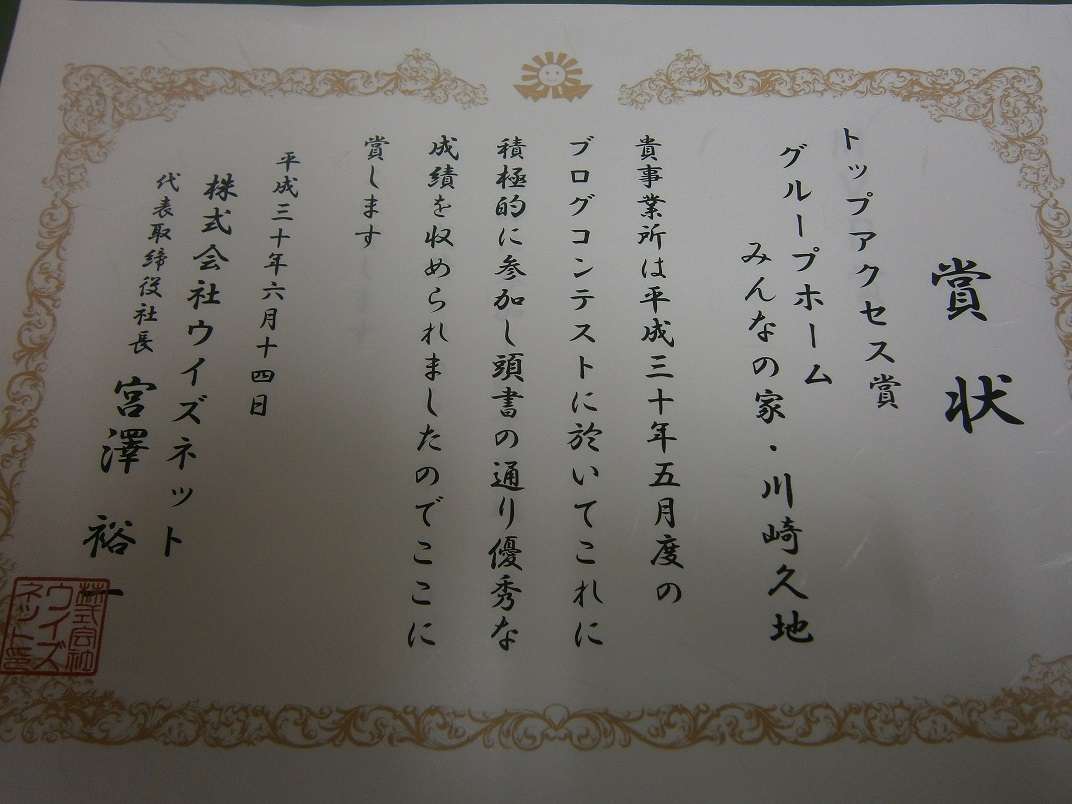 賞状
トップアクセス賞
グループホーム
みんなの家・川崎久地
貴事業所は平成三十年五月度の
ブログコンテストに於いてこれに
積極的に参加し頭書の通り優秀な
成績を収められましたのでここに
賞します
平成三十年六月十四日
株式会社ウイズネット
代表取締役社長 宮澤 裕一
株式会社
ウイズ
ネット印